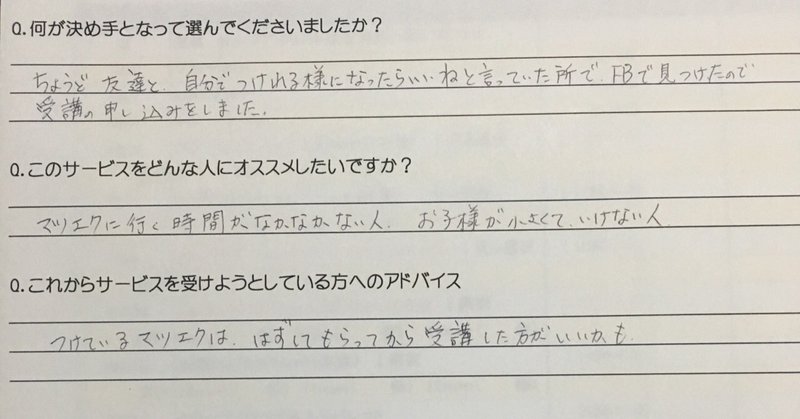 Q.何が決め手となって選んでくださいましたか？
ちょうど 友達と、自分でつけれる様になったらいいねと言っていた所で、FBで見つけたので
受講の申し込みをしました。
Q.このサービスをどんな人にオススメしたいですか？
マツエクに行く時間がなかなかない人、 お子様が小さくて、いけない人、
Q.これからサービスを受けようとしている方へのアドバイス
つけているマツエクは、はずしてもらってから受講した方がいいかも、